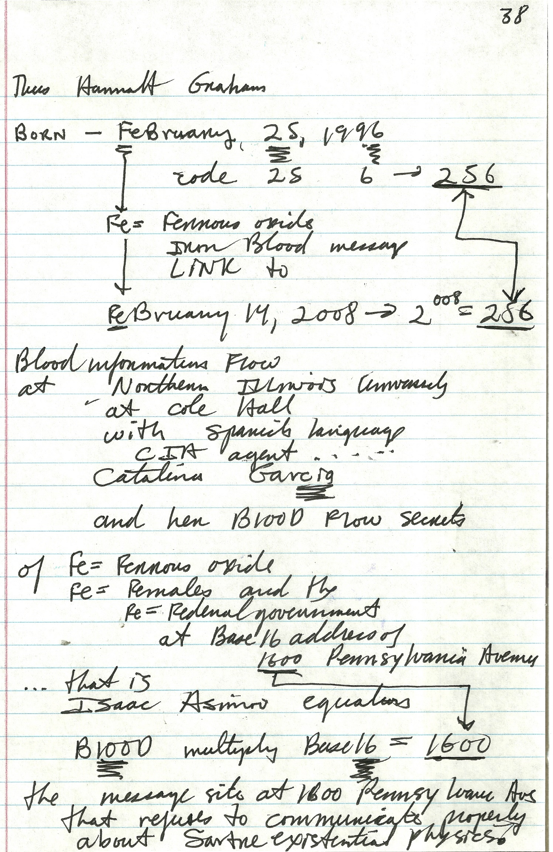 38
Thus Hannah Graham
BORN – FeBruary, 25, 1996
code 25 6 → 256
Fe = Ferrous oxide
Iron Blood message
LINK to
FeBruary 14, 2008 → 2⁰⁰⁸ = 256
Blood information Flow
at Northern Illinois University
at Cole Hall
with Spanish language
CIA agent ......
Catalina Garcia
and her BlOOD Flow secrets
of Fe = Ferrous oxide
Fe = Females and the
Fe = Federal government
at Base 16 address of
1600 Pennsylvania Avenue
... that is
Isaac Asimov equations
B100D multiply Base 16 = 1600
the message site at 1600 Pennsylvania Ave
that refuses to communicate properly
about Sartre existential physics.